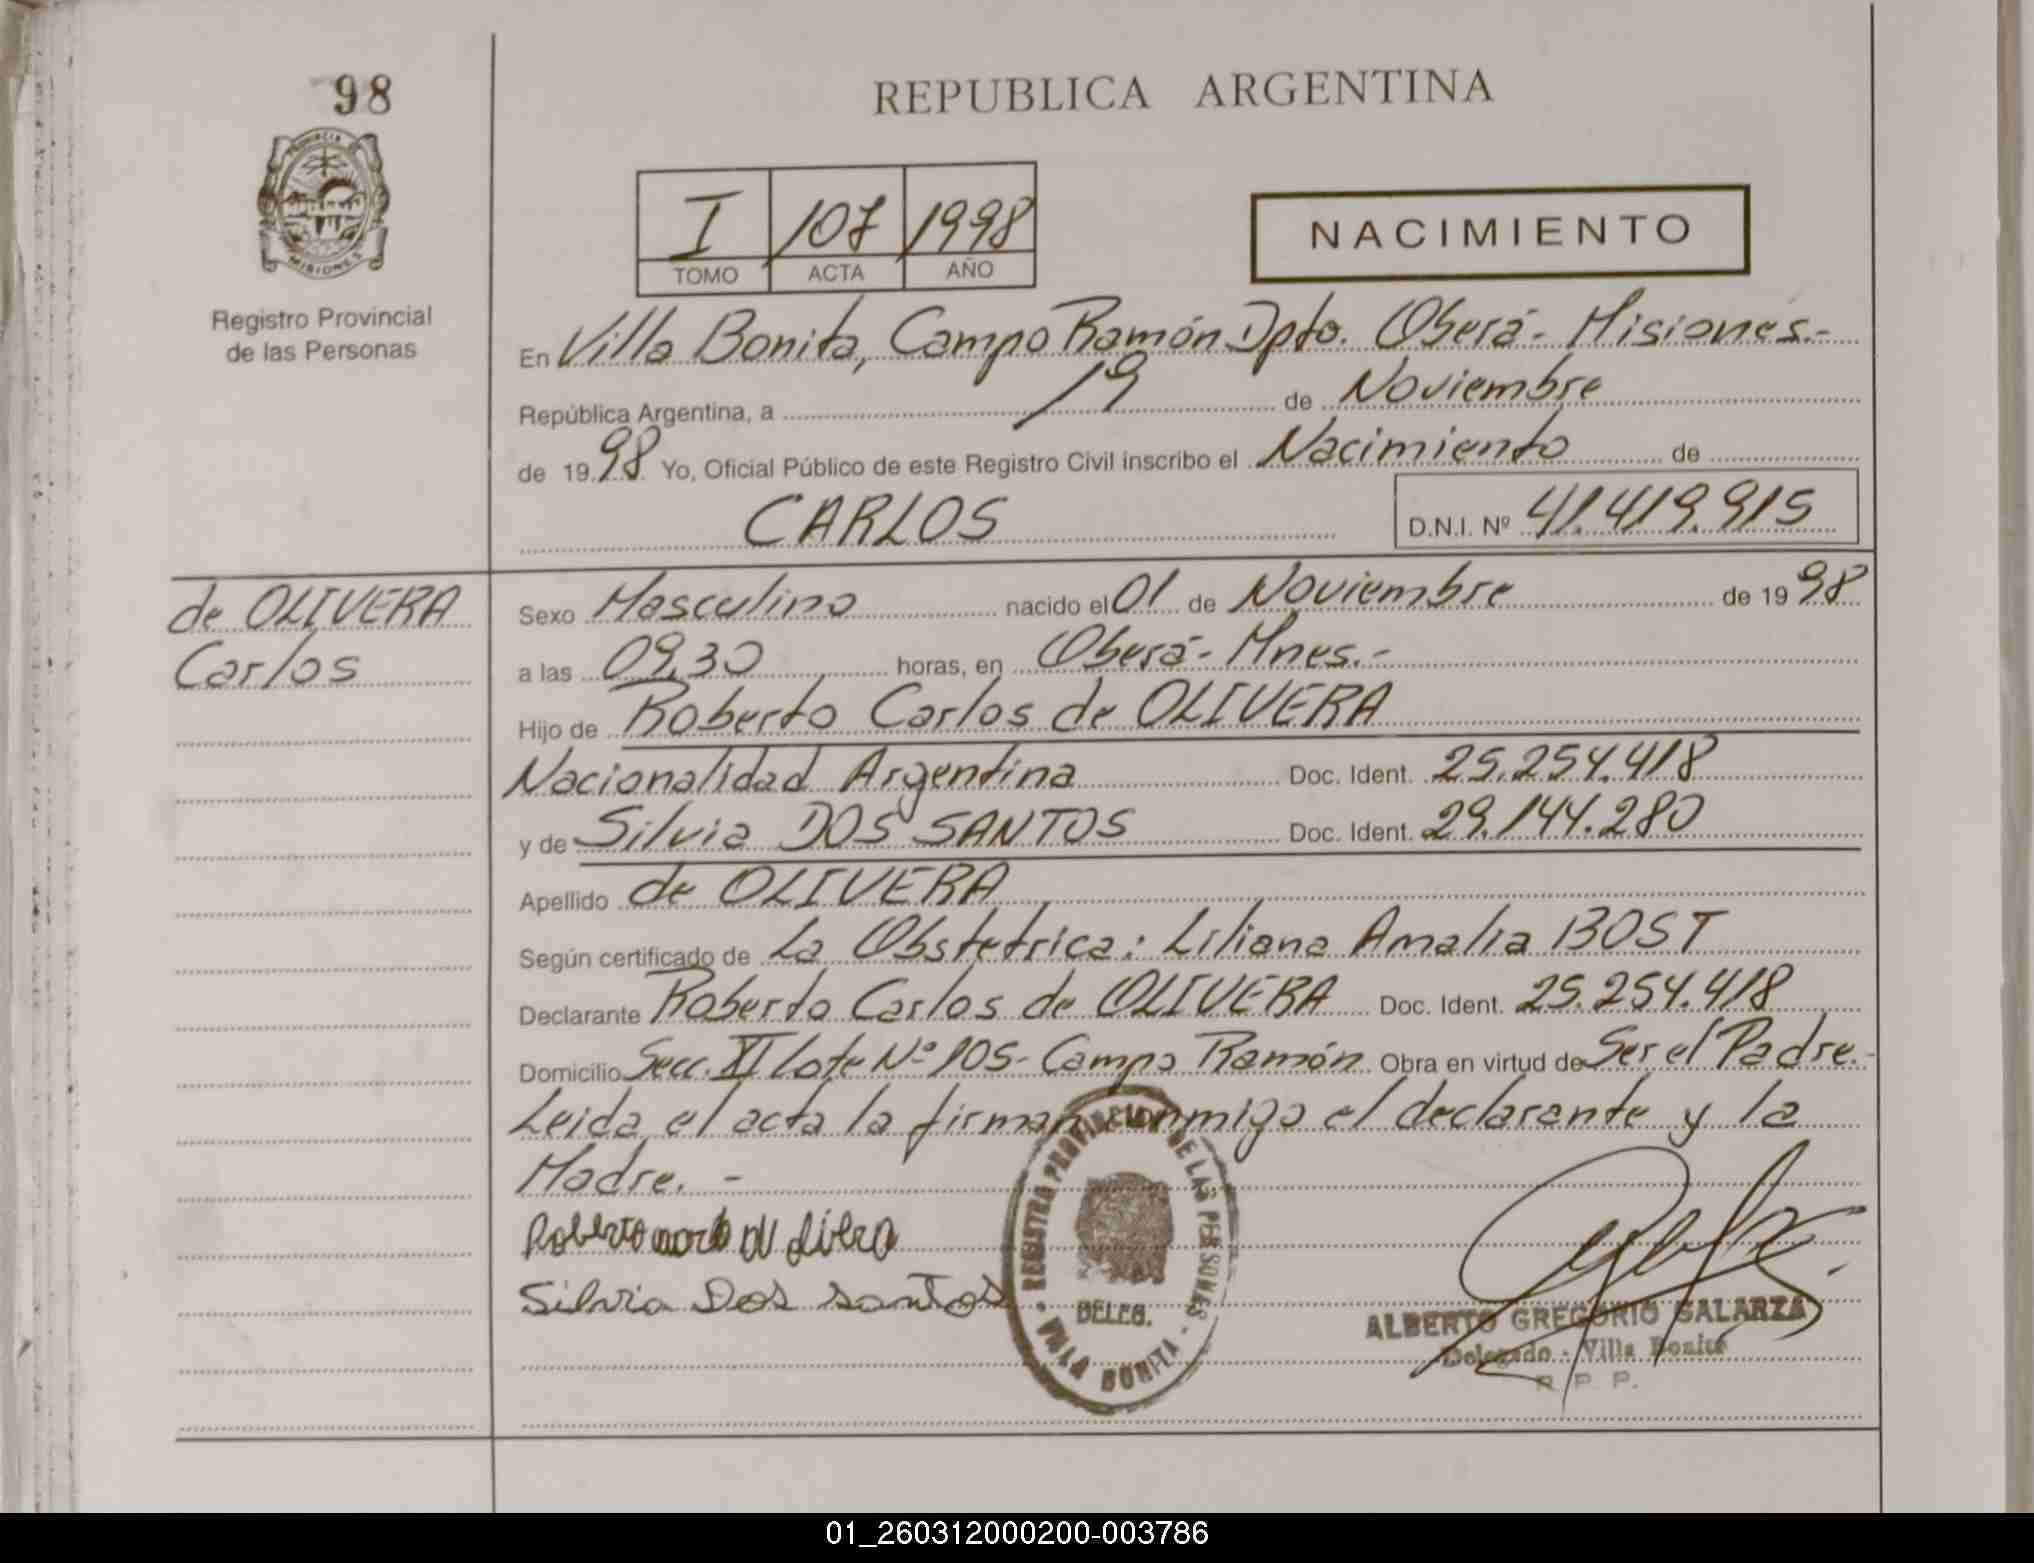 98
REPUBLICA ARGENTINA
PROVINCIA DE
MISIONES
Registro Provincial
de las Personas
I 107 1998
TOMO ACTA AÑO
NACIMIENTO
En Villa Bonita, Campo Ramón Dpto. Oberá - Misiones.-
República Argentina, a 19 de Noviembre
de 19 98 Yo, Oficial Público de este Registro Civil inscribo el Nacimiento de
CARLOS D.N.I. Nº 41.419.915
de OLIVERA
Carlos
Sexo Masculino nacido el 01 de Noviembre de 19 98
a las 09,30 horas, en Oberá - Mnes.-
Hijo de Roberto Carlos de OLIVERA
Nacionalidad Argentina Doc. Ident. 25.254.418
y de Silvia DOS SANTOS Doc. Ident. 29.144.280
Apellido de OLIVERA
Según certificado de La Obstetrica: Liliana Amalia BOST
Declarante Roberto Carlos de OLIVERA Doc. Ident. 25.254.418
Domicilio Secc. XI Lote Nº 105 - Campo Ramón Obra en virtud de Ser el Padre.-
Leida el acta la firman conmigo el declarante y la
Madre. -
Roberto
Silvia Dos santos
REGISTRO PROVINCIAL DE LAS PERSONAS
DELEG.
VILLA BONITA
ALBERTO GREGORIO SALARZA
Delegado - Villa Bonita
R. P. P.
01_260312000200-003786